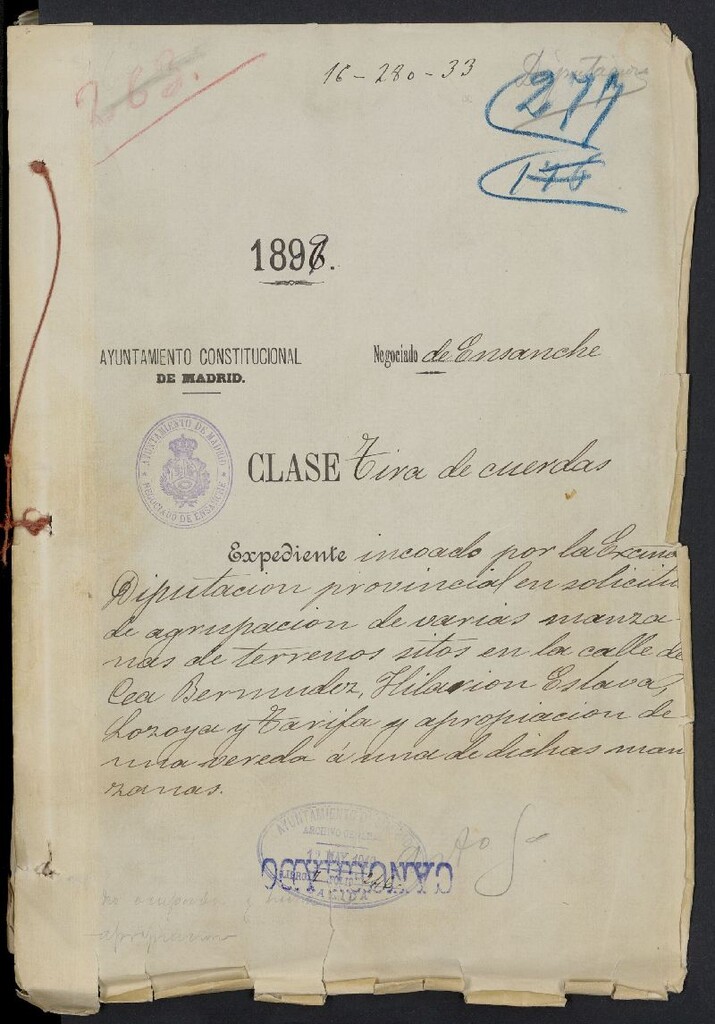 16-280-33
263.
277
176
1898.
AYUNTAMIENTO CONSTITUCIONAL
DE MADRID.
Negociado de Ensanche
AYUNTAMIENTO DE MADRID
NEGOCIADO DE ENSANCHE
CLASE Tira de cuerdas
Expediente incoado por la Excma
Diputacion provincial en solicitu
de agrupacion de varias manza-
nas de terrenos sitos en la calle de
Cea Bermudez, Hilarion Eslava,
Lozoya y Tarifa y apropiacion de
una vereda á una de dichas man
zanas.
AYUNTAMIENTO DE
ARCHIVO
MAY
CANCELADO